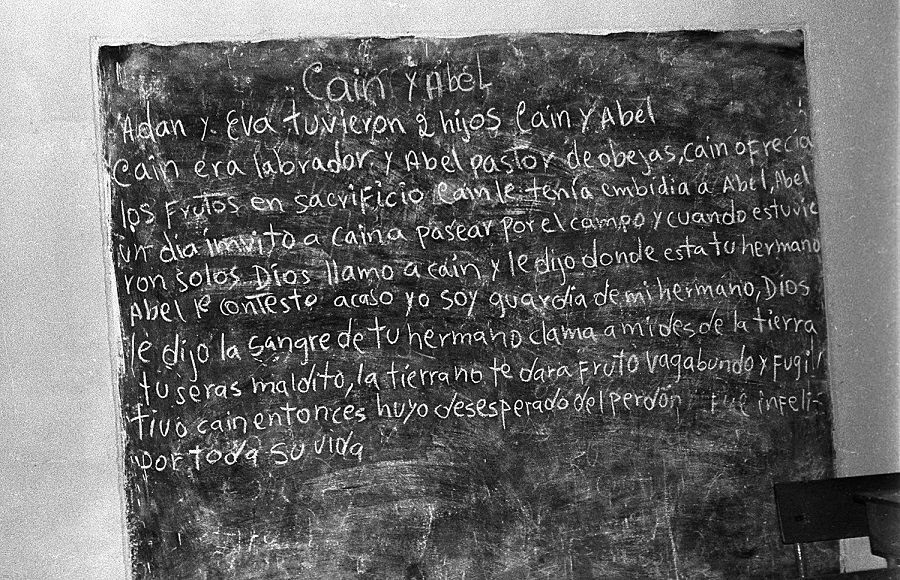 Cain y Abel
Adan y Eva tuvieron 2 hijos Cain y Abel
Cain era labrador y Abel pastor de obejas, cain ofrecia
los frutos en sacrificio Cain le tenia embidia a Abel, Abel
un dia imvito a Cain a pasear por el campo y cuando estuvie
ron solos Dios llamo a cain y le dijo donde esta tu hermano
Abel le contesto acaso yo soy guardia de mi hermano, Dios
le dijo la sangre de tu hermano clama a mi desde la tierra
tu seras maldito, la tierra no te dara fruto vagabundo y fugi
tivo cain entonces huyo desesperado del perdón fue infeli
por toda su vida